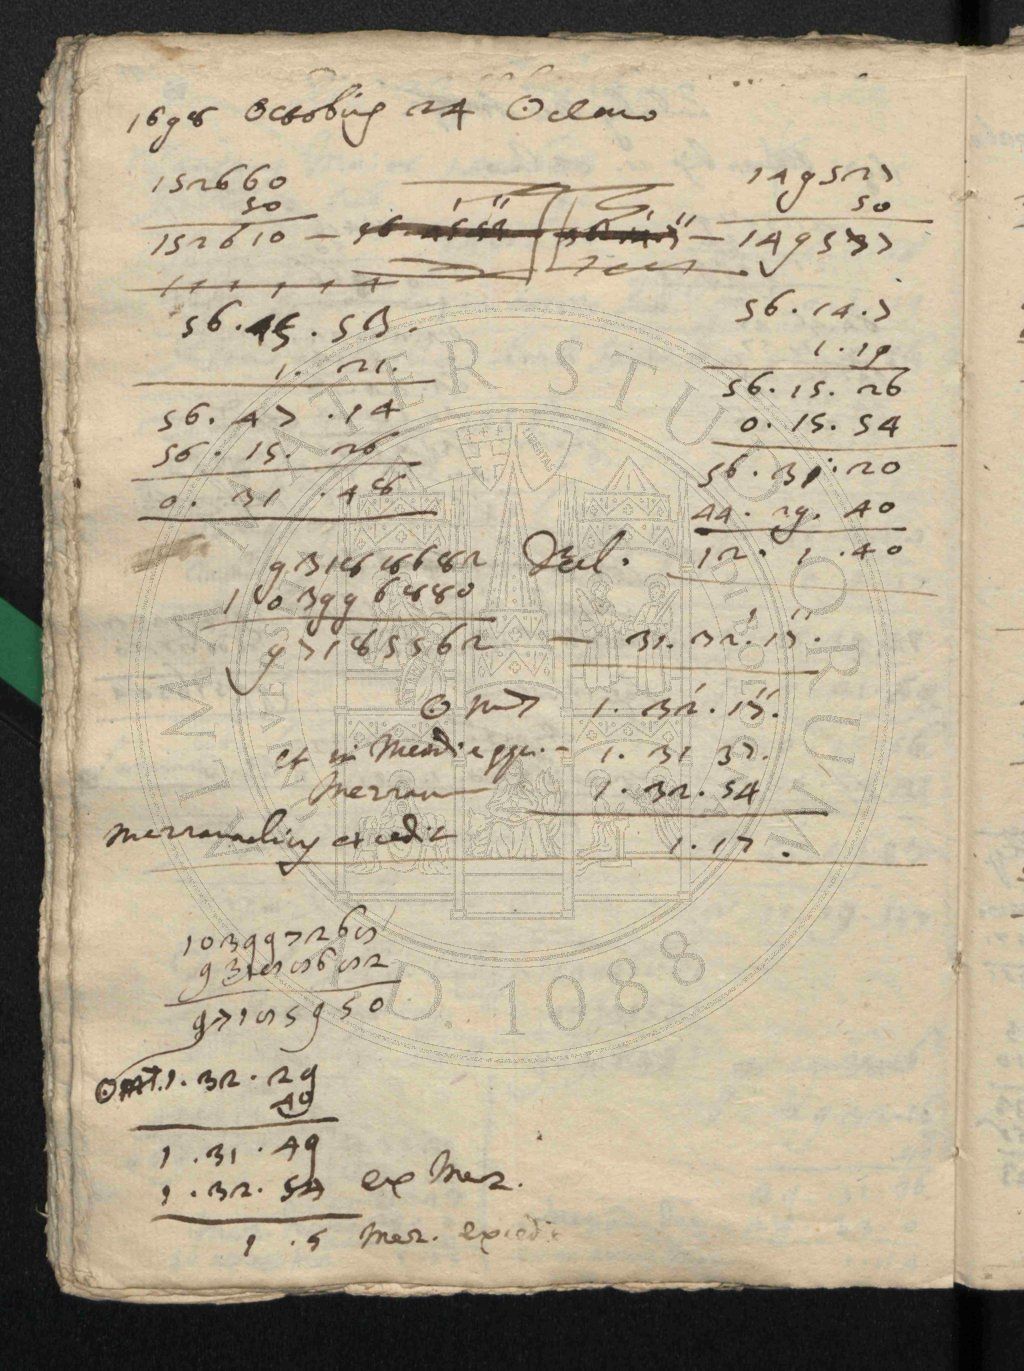 1698 Octobris 24 ☉
152660
50
152610 —
149527
50
— 149577
56.45.53.
1.21.
56.47.14
56.15.26
0.31.48
56.14.7
1.19
56.15.26
0.15.54
56.31.20
44.29.40
12.1.40
93188682 Decl.
1 03996880
97185562 — 31.32'.17''.
☉ 1.32'.17''.
et in Meridie — 1.31 37.
1.32.54
excedit 1.17.
103997268
93188682
97185950
☉ 1.32.29
40
1.31.49
1.32.54 ex Mez.
1.5 Mez. excedit
ALMA MATER STUDIORUM
A.D. 1088
LIBERTAS